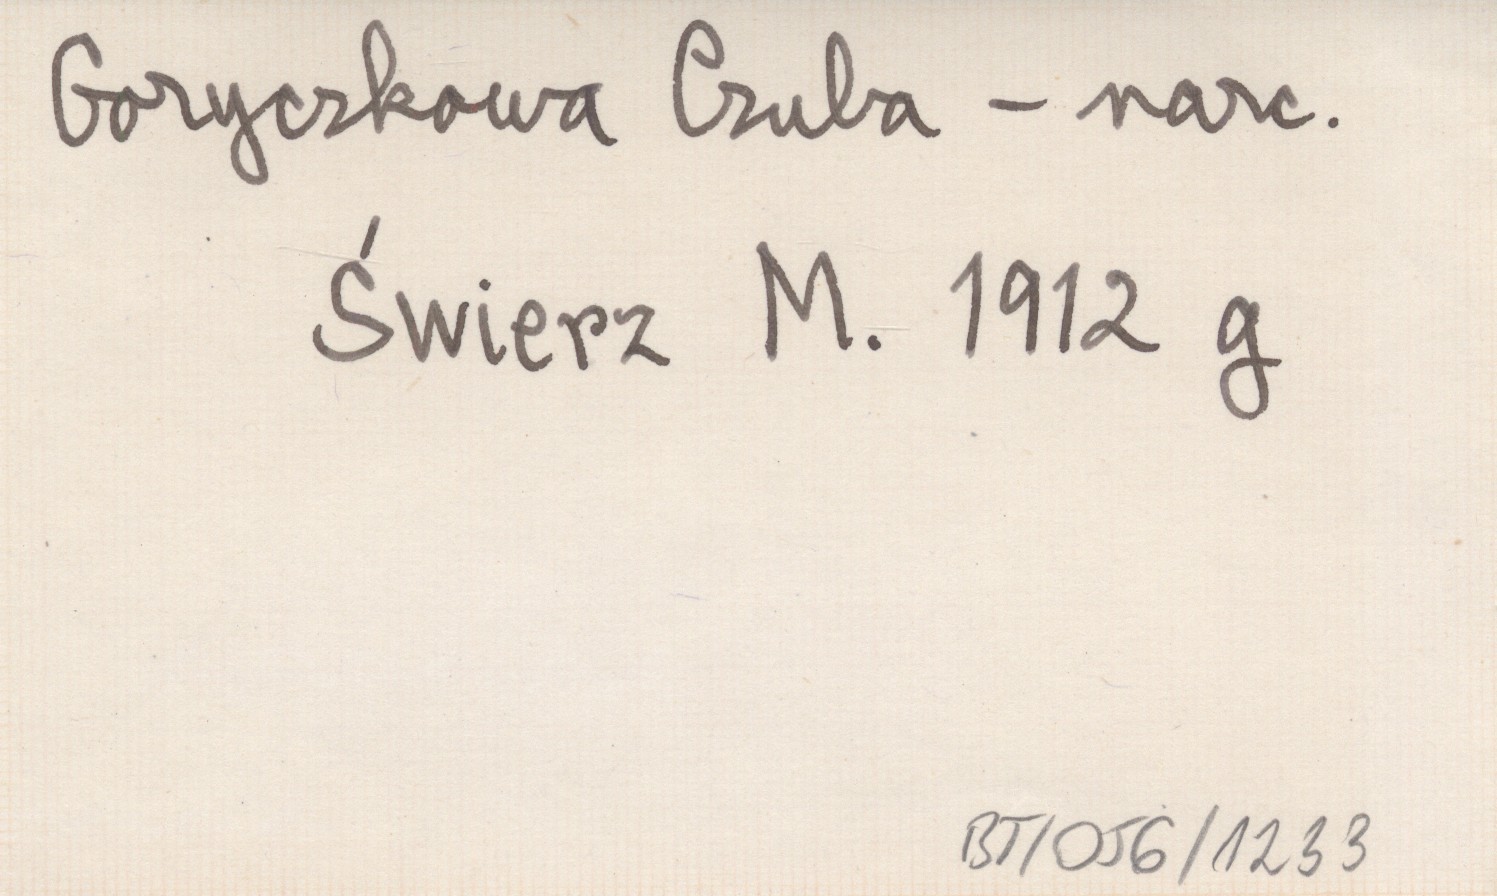 Goryczkowa Czuba - narc.
Świerz M. 1912 g
BT/056/1233